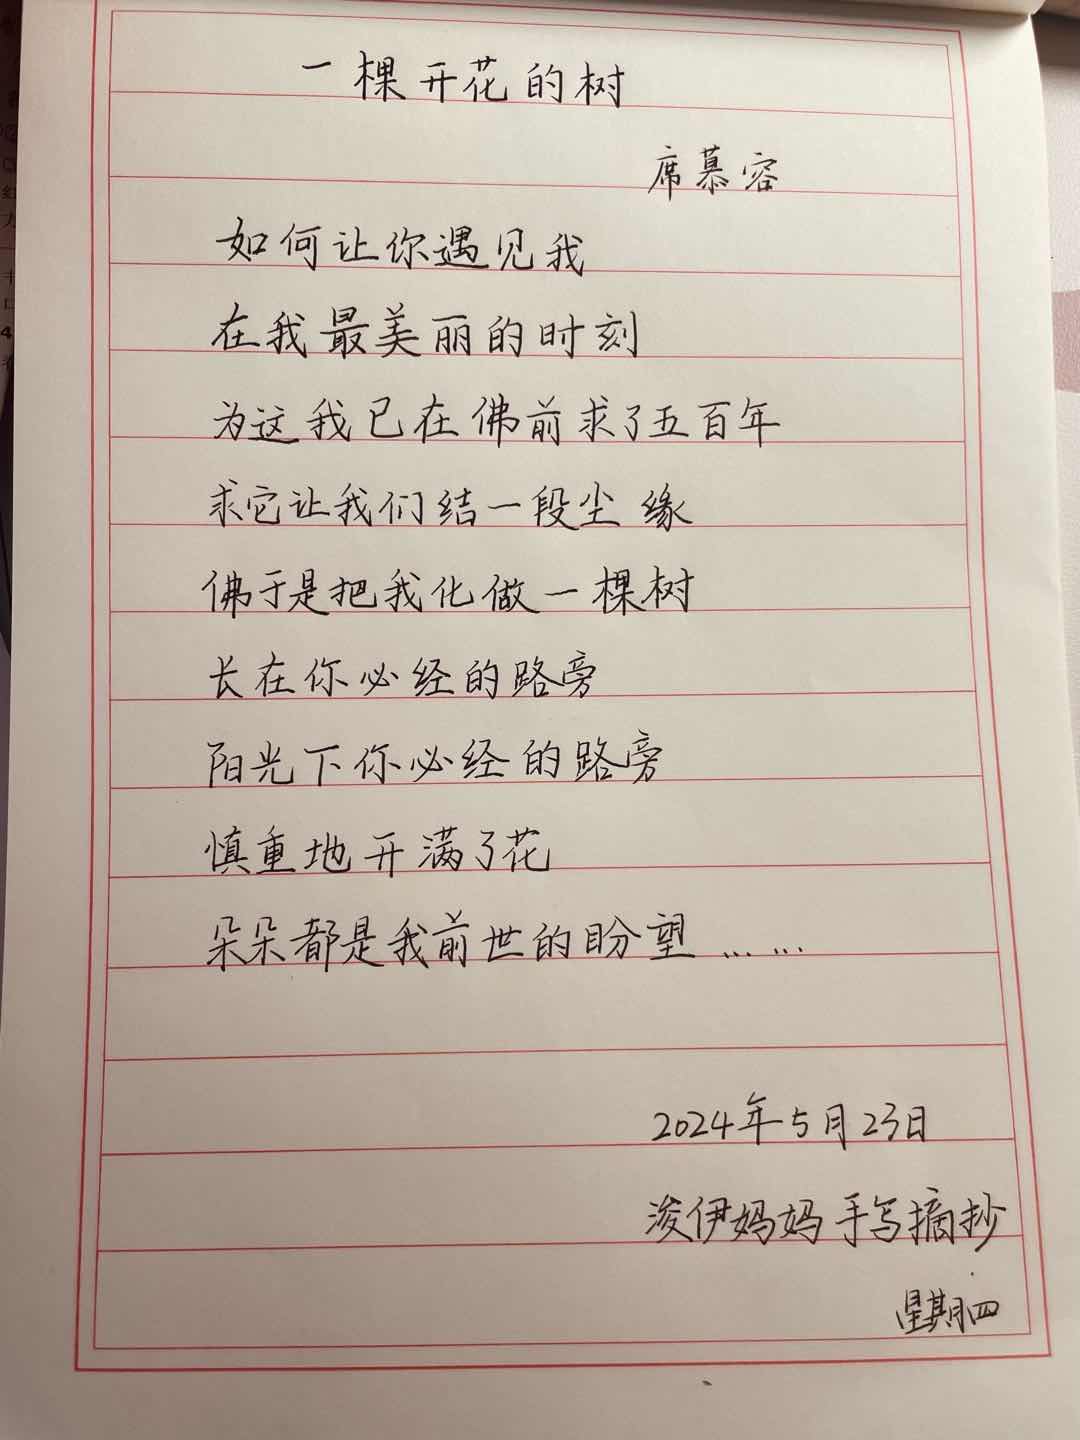 一棵开花的树
席慕容
如何让你遇见我
在我最美丽的时刻
为这我已在佛前求了五百年
求它让我们结一段尘缘
佛于是把我化做一棵树
长在你必经的路旁
阳光下你必经的路旁
慎重地开满了花
朵朵都是我前世的盼望……
2024年5月23日
浚伊妈妈手写摘抄
星期四